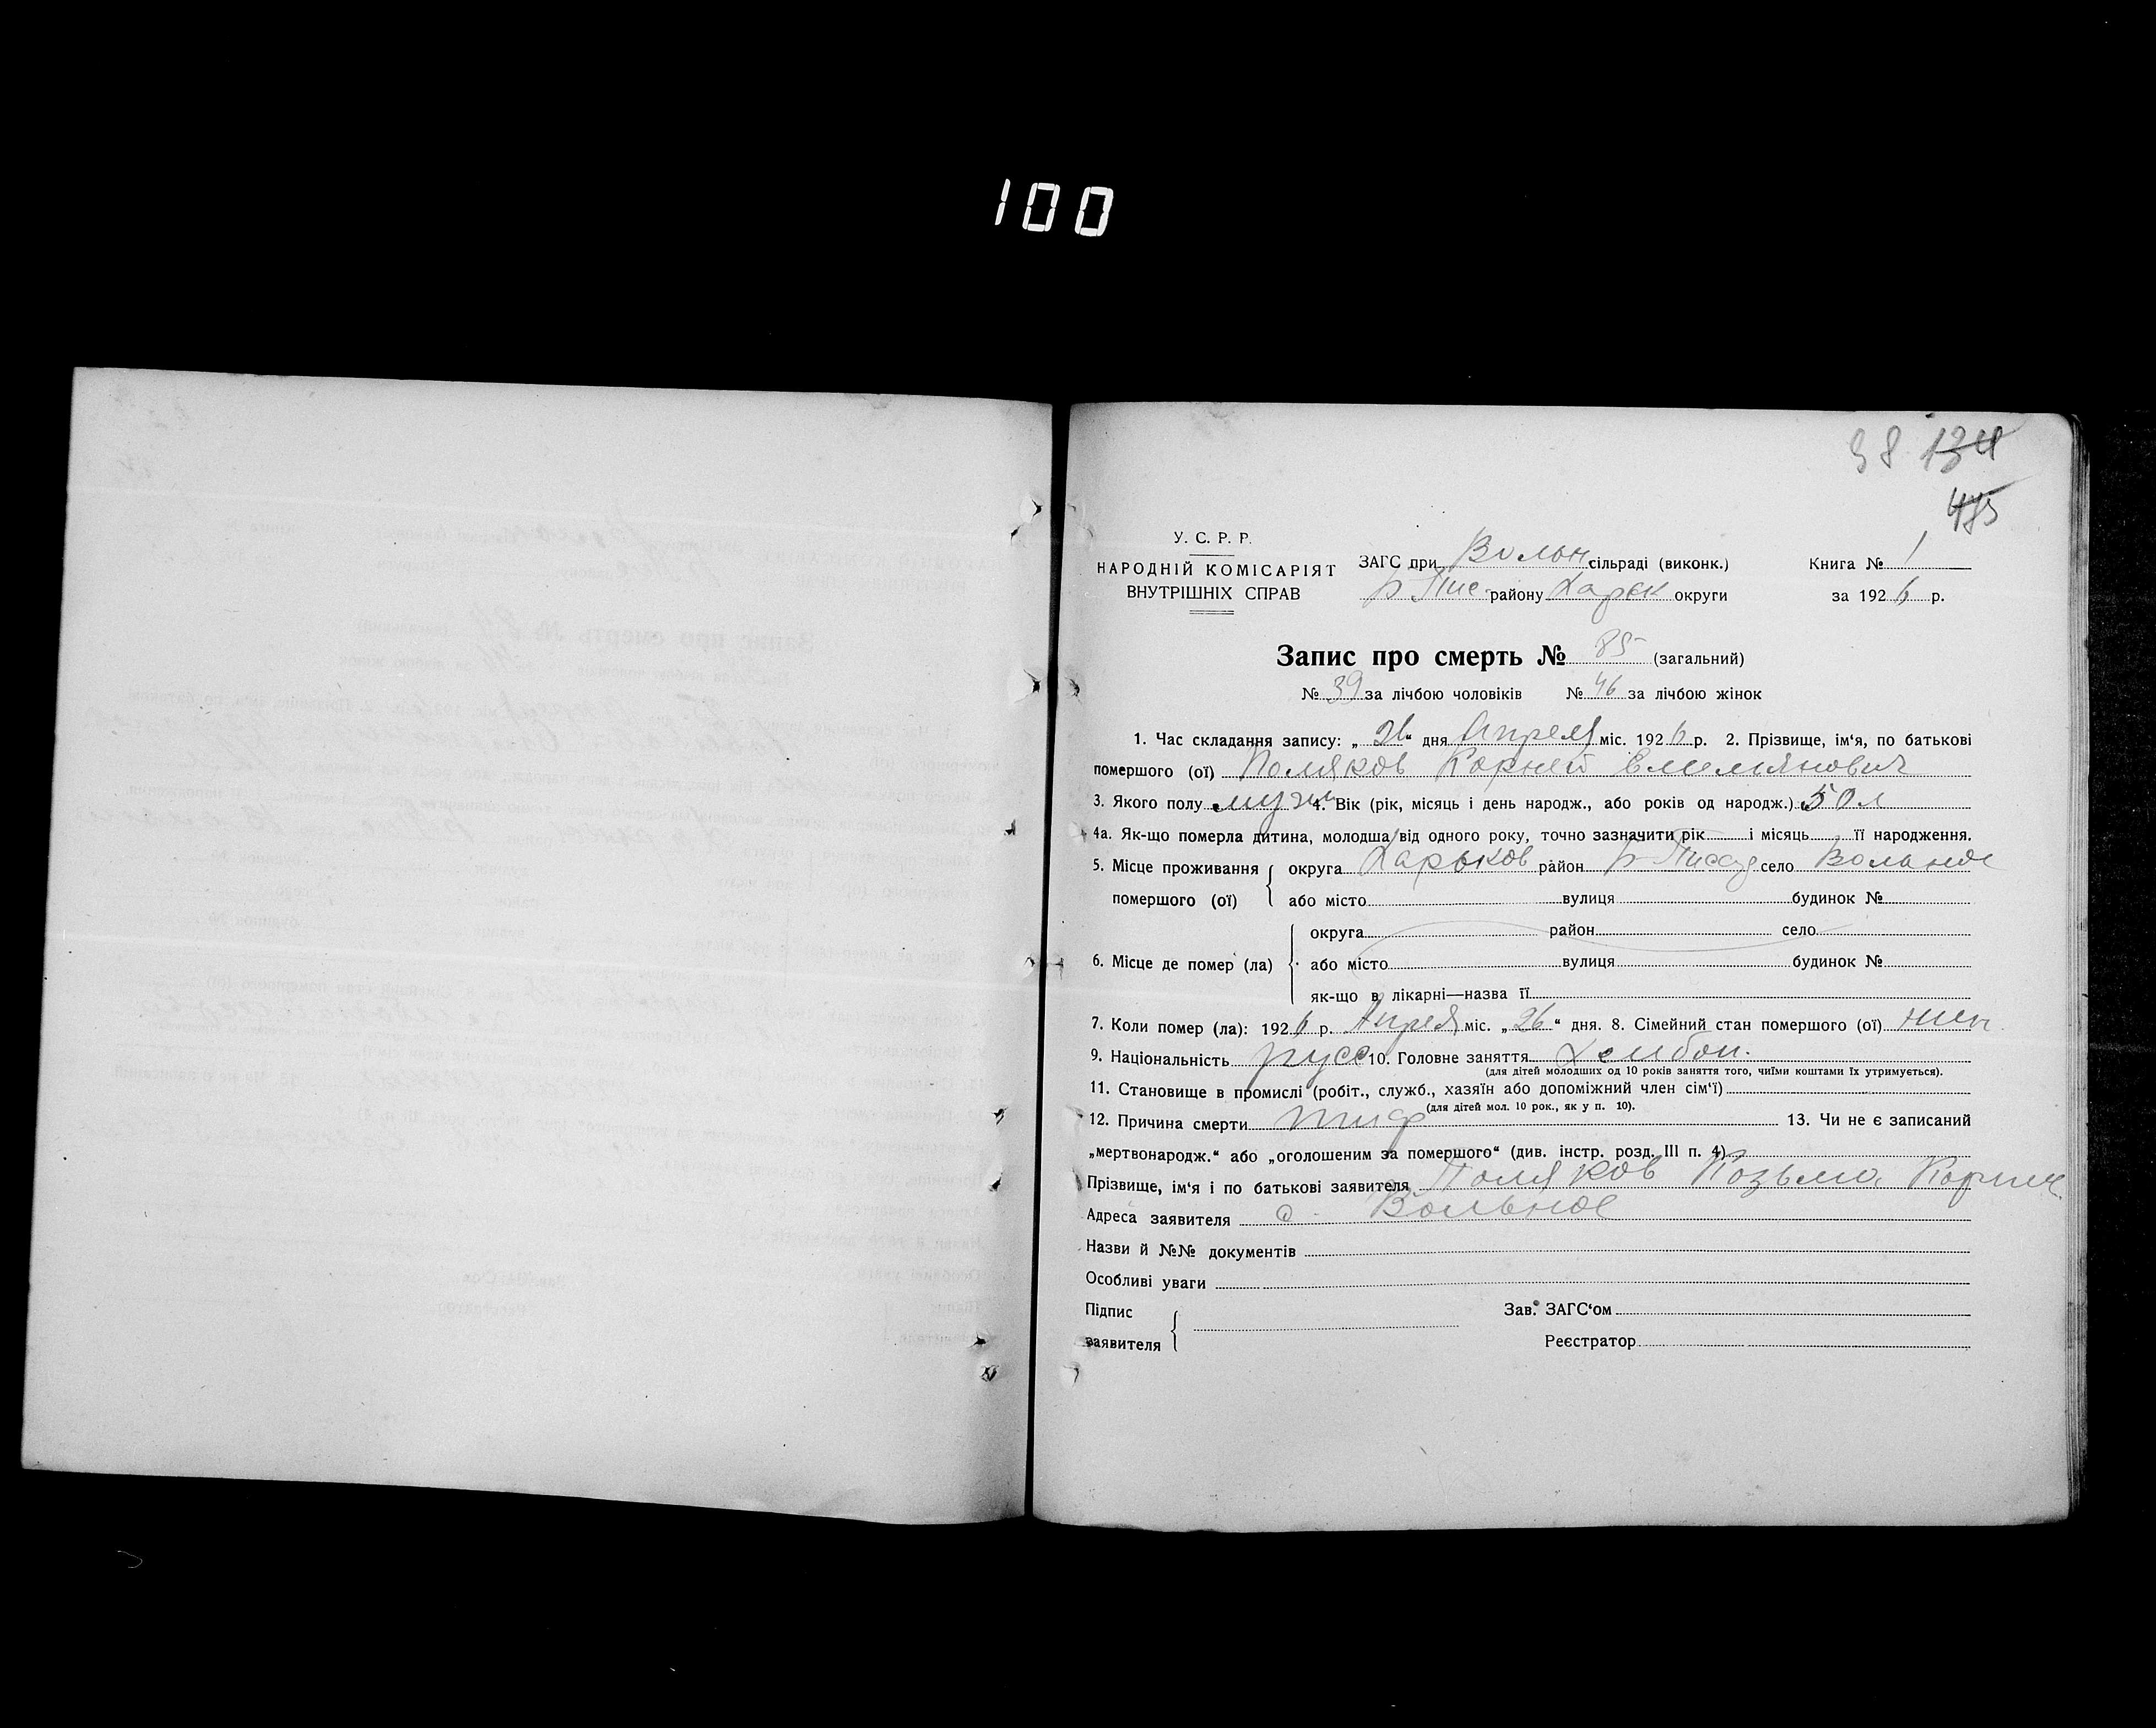 100
98 134
475
У. С. Р. Р.
НАРОДНІЙ КОМІСАРІЯТ
ВНУТРІШНІХ СПРАВ
ЗАГС при Вольн сільраді (виконк.) Книга № 1
Б Пис району Харьк округи за 1926 р.
Запис про смерть № 85 (загальний)
№ 39 за лічбою чоловіків № 46 за лічбою жінок
1. Час складання запису: „26“ дня Апреля міс. 1926 р. 2. Прізвище, ім‘я, по батькові
помершого (ої) Поляков Корней Емельянович
3. Якого полу муж 4. Вік (рік, місяць і день народж., або років од народж.) 50 л
4а. Як-що померла дитина, молодша від одного року, точно зазначити рік і місяць її народження.
5. Місце проживання помершого (ої) округа Харьков район Б село Вольное
або місто вулиця будинок №
6. Місце де помер (ла) округа район село
або місто вулиця будинок №
як-що в лікарні—назва її
7. Коли помер (ла): 1926 р. Апреля міс. „26“ дня. 8. Сімейний стан помершого (ої)
9. Національність русс 10. Головне заняття
(для дітей молодших од 10 років заняття того, чиїми коштами їх утримується).
11. Становище в промислі (робіт., служб., хазяїн або допоміжний член сім‘ї)
(для дітей мол. 10 рок., як у п. 10).
12. Причина смерти тиф 13. Чи не є записаний
„мертвонародж.“ або „оголошеним за помершого“ (див. інстр. розд. III п. 4)
Прізвище, ім‘я і по батькові заявителя Поляков Козьма Корнее
Адреса заявителя с. Вольное
Назви й №№ документів
Особливі уваги
Підпис заявителя
Зав. ЗАГС‘ом
Реєстратор